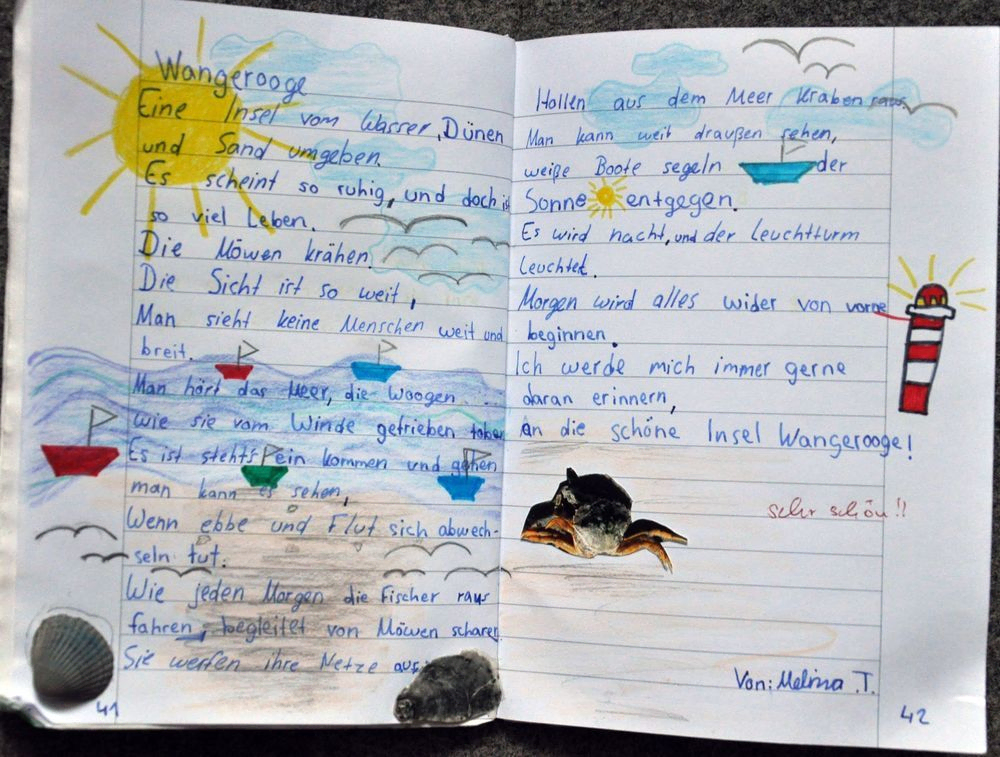 Wangerooge
Eine Insel vom Wasser, Dünen
und Sand umgeben.
Es scheint so ruhig, und doch ist
so viel Leben.
Die Möwen krähen.
Die Sicht ist so weit,
Man sieht keine Menschen weit und
breit.
Man hört das Meer, die Woogen
wie sie vom Winde getrieben toben
Es ist steht's ein kommen und gehen
man kann es sehen,
Wenn ebbe und Flut sich abwech-
seln tut.
Wie jeden Morgen die Fischer raus
fahren, begleitet von Möwen scharen.
Sie werfen ihre Netze aus
41
Hollen aus dem Meer Kraben raus.
Man kann weit draußen sehen,
weiße Boote segeln der
Sonne entgegen.
Es wird nacht, und der Leuchtturm
Leuchtet.
Morgen wird alles wider von vorne
beginnen.
Ich werde mich immer gerne
daran erinnern,
an die schöne Insel Wangerooge!
sehr schön!!
Von: Melina .T.
42